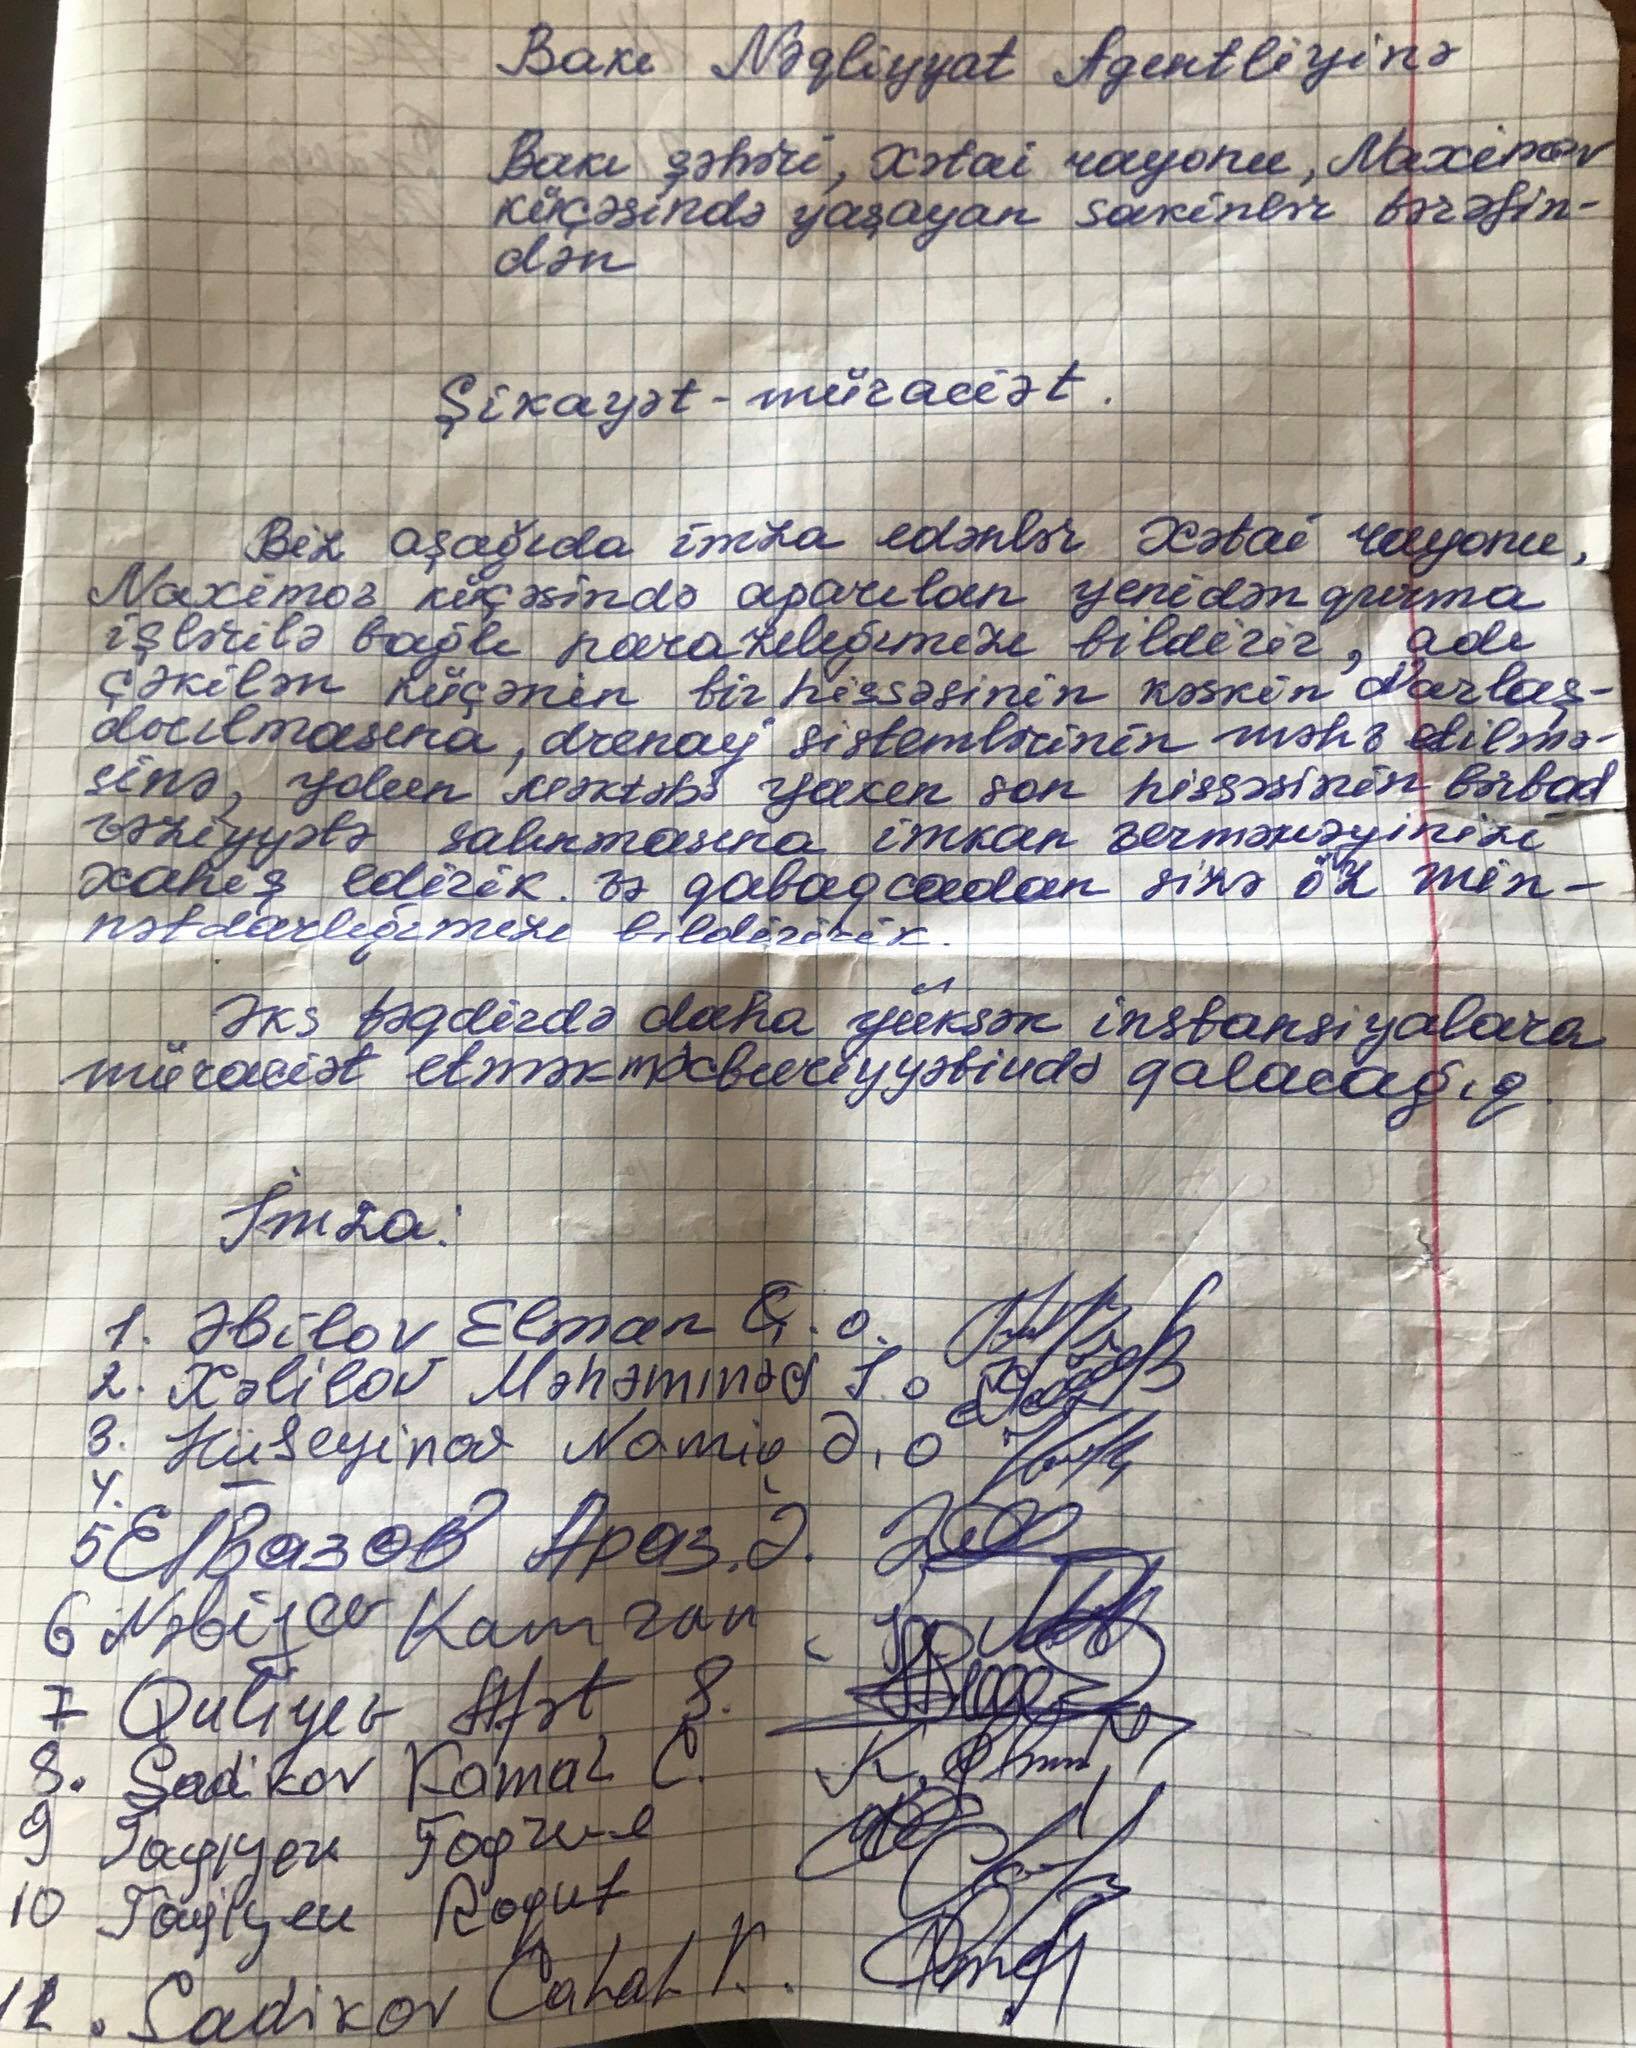 Bakı Nəqliyyat Agentliyinə
Bakı şəhəri, Xətai rayonu, Naximov
küçəsində yaşayan sakinlər tərəfin-
dən
Şikayət-müraciət.
Biz aşağıda imza edənlər Xətai rayonu,
Naximov küçəsində aparılan yenidənqurma
işlərilə bağlı narazılığımızı bildirir, adı
çəkilən küçənin bir hissəsinin kəskin darlaş-
dırılmasına, drenaj sistemlərinin məhv edilmə-
sinə, yolun məktəbə yaxın son hissəsinin bərbad
vəziyyətə salınmasına imkan verməməyinizi
xahiş edirik və qabaqcadan sizə öz min-
nətdarlığımızı bildiririk.
Əks təqdirdə daha yüksək instansiyalara
müraciət etmək məcburiyyətində qalacağıq.
İmza:
1. Əbilov Elman Q. o.
2. Xəlilov Məhəmməd İ. o
3. Hüseyinov Namiq Ə. o
4.
5 Ейвазов Араз. Ə.
6 Nəbiyev Kamran
7 Quliyev Afət Ş.
8. Sadikov Kamal C.
9 Tagıyev Togrul
10 Tagıyev
11. Sadikov Cahal K.